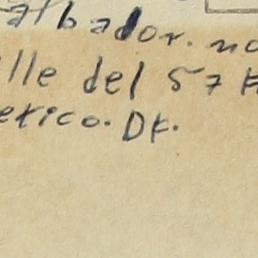 albador. no
lle del 57 
exico. DF.